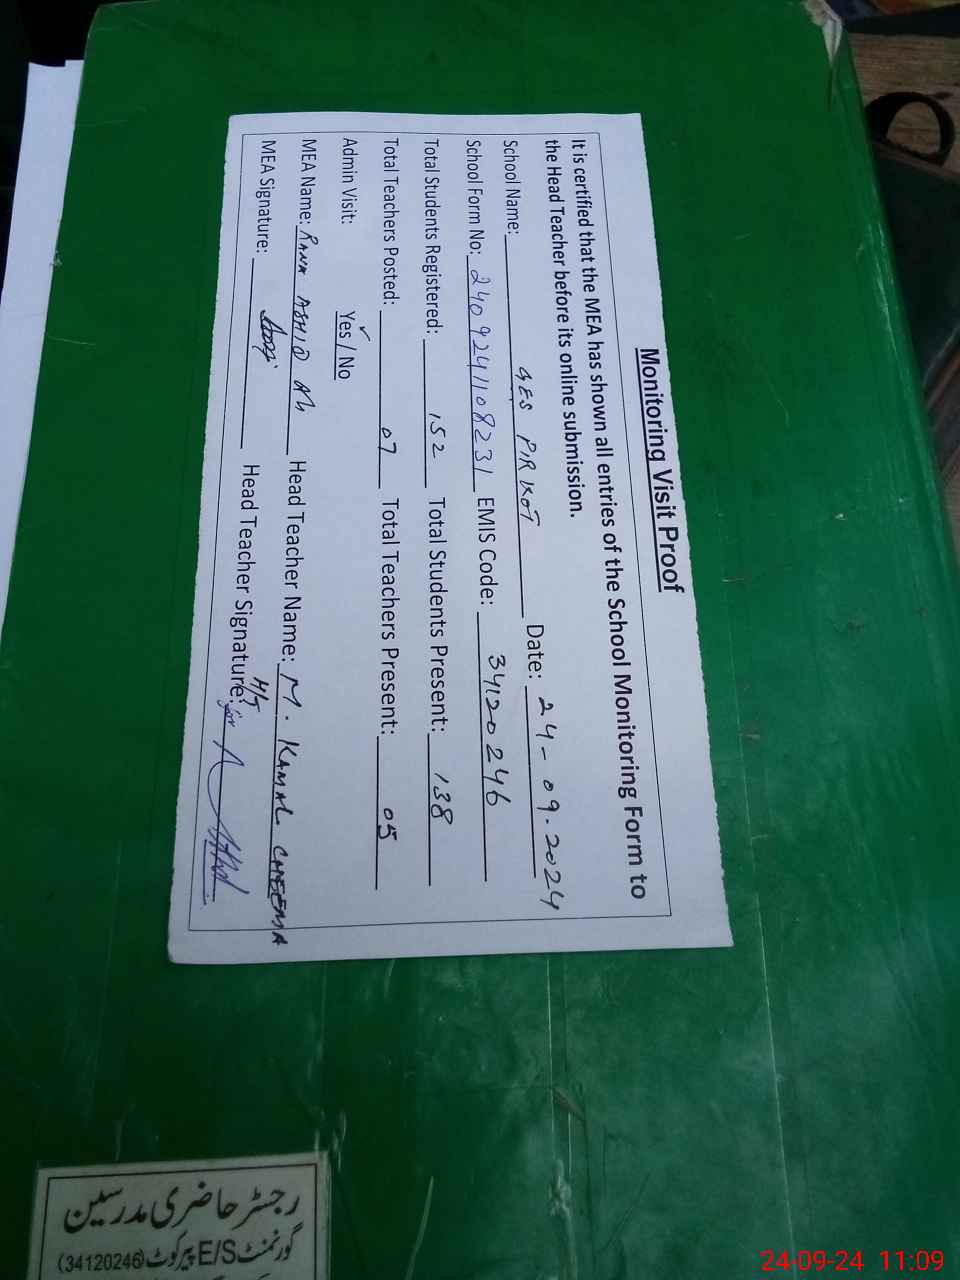 Monitoring Visit Proof
It is certified that the MEA has shown all entries of the School Monitoring Form to
the Head Teacher before its online submission.
School Name: GES PIR KOT Date: 24-09-2024
School Form No: 2409241108231 EMIS Code: 34120246
Total Students Registered: 152 Total Students Present: 138
Total Teachers Posted: 07 Total Teachers Present: 05
Admin Visit: Yes / No
MEA Name: RANA ASHIQ Ali Head Teacher Name: M. KAMAL CHEEMA
MEA Signature: Head Teacher Signature: for H/T
رجسٹر حاضری مدرسین
گورنمنٹ E/S پیرکوٹ (34120246)
24-09-24 11:09